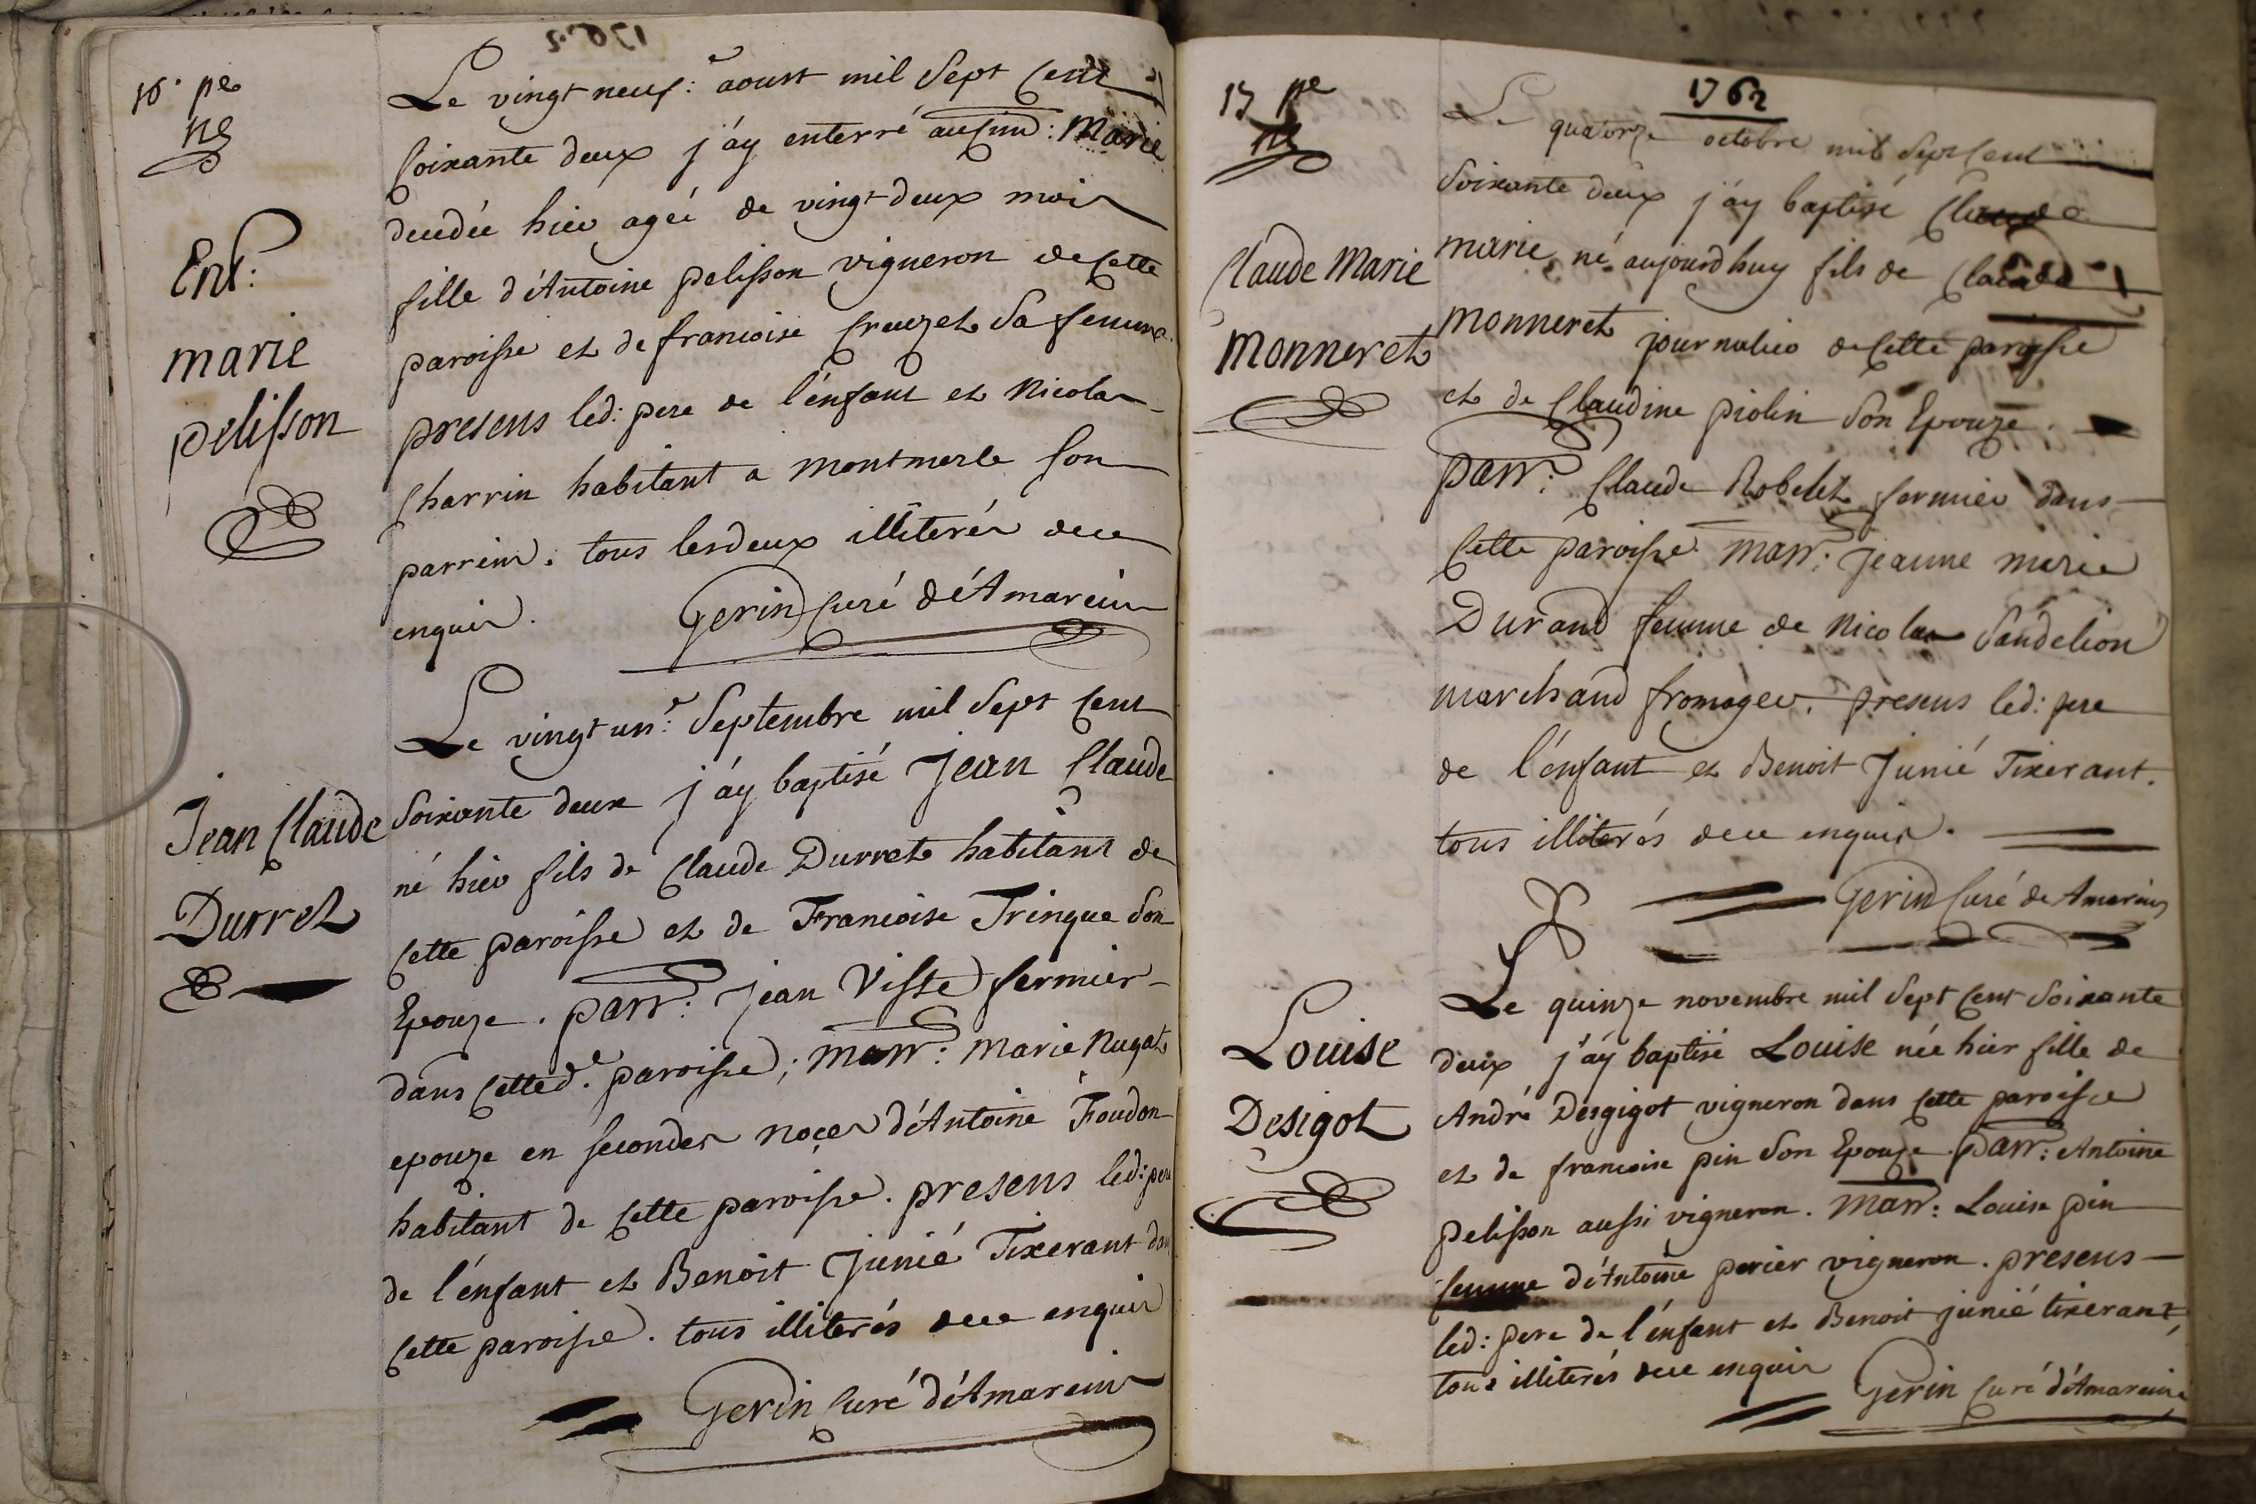 16.e pe
Ent:
marie
pelisson
Le vingt neuf.e aoust mil Sept Cent
Soixante deux j'ay enterré au Cim: Marie
decedée hier agée de vingt deux mois
fille d'Antoine pelisson vigneron de Cette
paroisse et de francoise Creuzet Sa femme.
presens led: pere de l'énfant et Nicolas
Charrin habitant a montmerle son
parrein. tous les deux illiterés de ce
enquis. Gerin Curé d'Amareins
Jean Claude
Durret
Le vingt un.e Septembre mil Sept Cent
Soixante deux j'ay baptisé Jean Claude
né hier fils de Claude Durret habitant de
Cette paroisse et de Francoise Tringue Son
Epouze. parr: Jean Viste fermier
dans Cette d.e paroisse; marr: Marie Nugat
epouze en secondes noçes d'Antoine Foudon
habitant de Cette paroisse. presens led: pere
de l'énfant et Benoit Junié Tixerant dans
Cette paroisse. tous illiterés de ce enquis
Gerin Curé d'Amareins
1762
17 pe
Claude Marie
Monneret
Le quatorze octobre mil Sept Cent
Soixante deux j'ay baptisé Claude
marie né aujourd'huy fils de Claude
Monneret journalier de Cette paroisse
et de Claudine piolin Son Epouze.
parr: Claude Robelet fermier dans
Cette paroisse marr: Jeanne marie
Durand femme de Nicolas Sandelion
marchand fromager. presens led: pere
de l'énfant et Benoit Junié Tixerant.
tous illiterés de ce enquis.
Gerin Curé de Amareins
Louise
Desigot
Le quinze novembre mil Sept Cent Soixante
deux j'ay baptisé Louise née hier fille de
André Desgigot vigneron dans Cette paroisse
et de francoise pin Son Epouze parr: Antoine
pelisson aussi vigneron. marr: Louise pin
femme d'Antoine perier vigneron. presens
led: pere de l'énfant et Benoit junié tixerant,
tous illiterés de ce enquis Gerin Curé d'Amareins